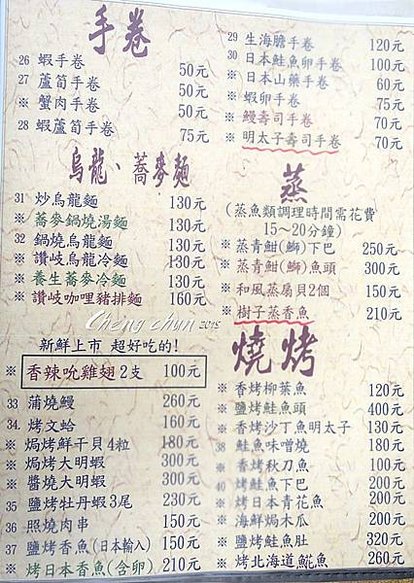 手卷
26 蝦手卷 50元
27 蘆筍手卷 50元
※ 蟹肉手卷 50元
28 蝦蘆筍手卷 75元
29 生海膽手卷 120元
30 日本鮭魚卵手卷 100元
※ 日本山藥手卷 60元
※ 蝦卵手卷 75元
※ 鰻壽司手卷 70元
※ 明太子壽司手卷 70元
烏龍、蕎麥麵
31 炒烏龍麵 130元
※ 蕎麥鍋燒湯麵 130元
32 鍋燒烏龍麵 130元
※ 讚岐烏龍冷麵 130元
※ 養生蕎麥冷麵 130元
※ 讚岐咖哩豬排麵 160元
蒸
(蒸魚類調理時間需花費
15～20分鐘)
※ 蒸青魽(鰤)下巴 250元
※ 蒸青魽(鰤)魚頭 300元
※ 和風蒸扇貝2個 150元
※ 樹子蒸香魚 210元
Cheng chun 2015
新鮮上市 超好吃的!
※ 香辣吮雞翅2支 100元
33 蒲燒鰻 260元
34 烤文蛤 180元
※ 焗烤鮮干貝4粒 180元
※ 焗烤大明蝦 300元
※ 醬燒大明蝦 300元
35 鹽烤牡丹蝦3尾 230元
36 照燒肉串 150元
37 鹽烤香魚(日本輸入) 150元
※ 烤日本香魚(含卵) 210元
燒烤
※ 香烤柳葉魚 120元
※ 鹽烤鮭魚頭 400元
※ 香烤沙丁魚明太子 130元
38 鮭魚味噌燒 180元
※ 香烤秋刀魚 100元
40 烤鮭魚下巴 200元
※ 烤日本青花魚 200元
※ 海鮮焗木瓜 200元
※ 鹽烤鮭魚肚 320元
※ 烤北海道䱋魚 260元